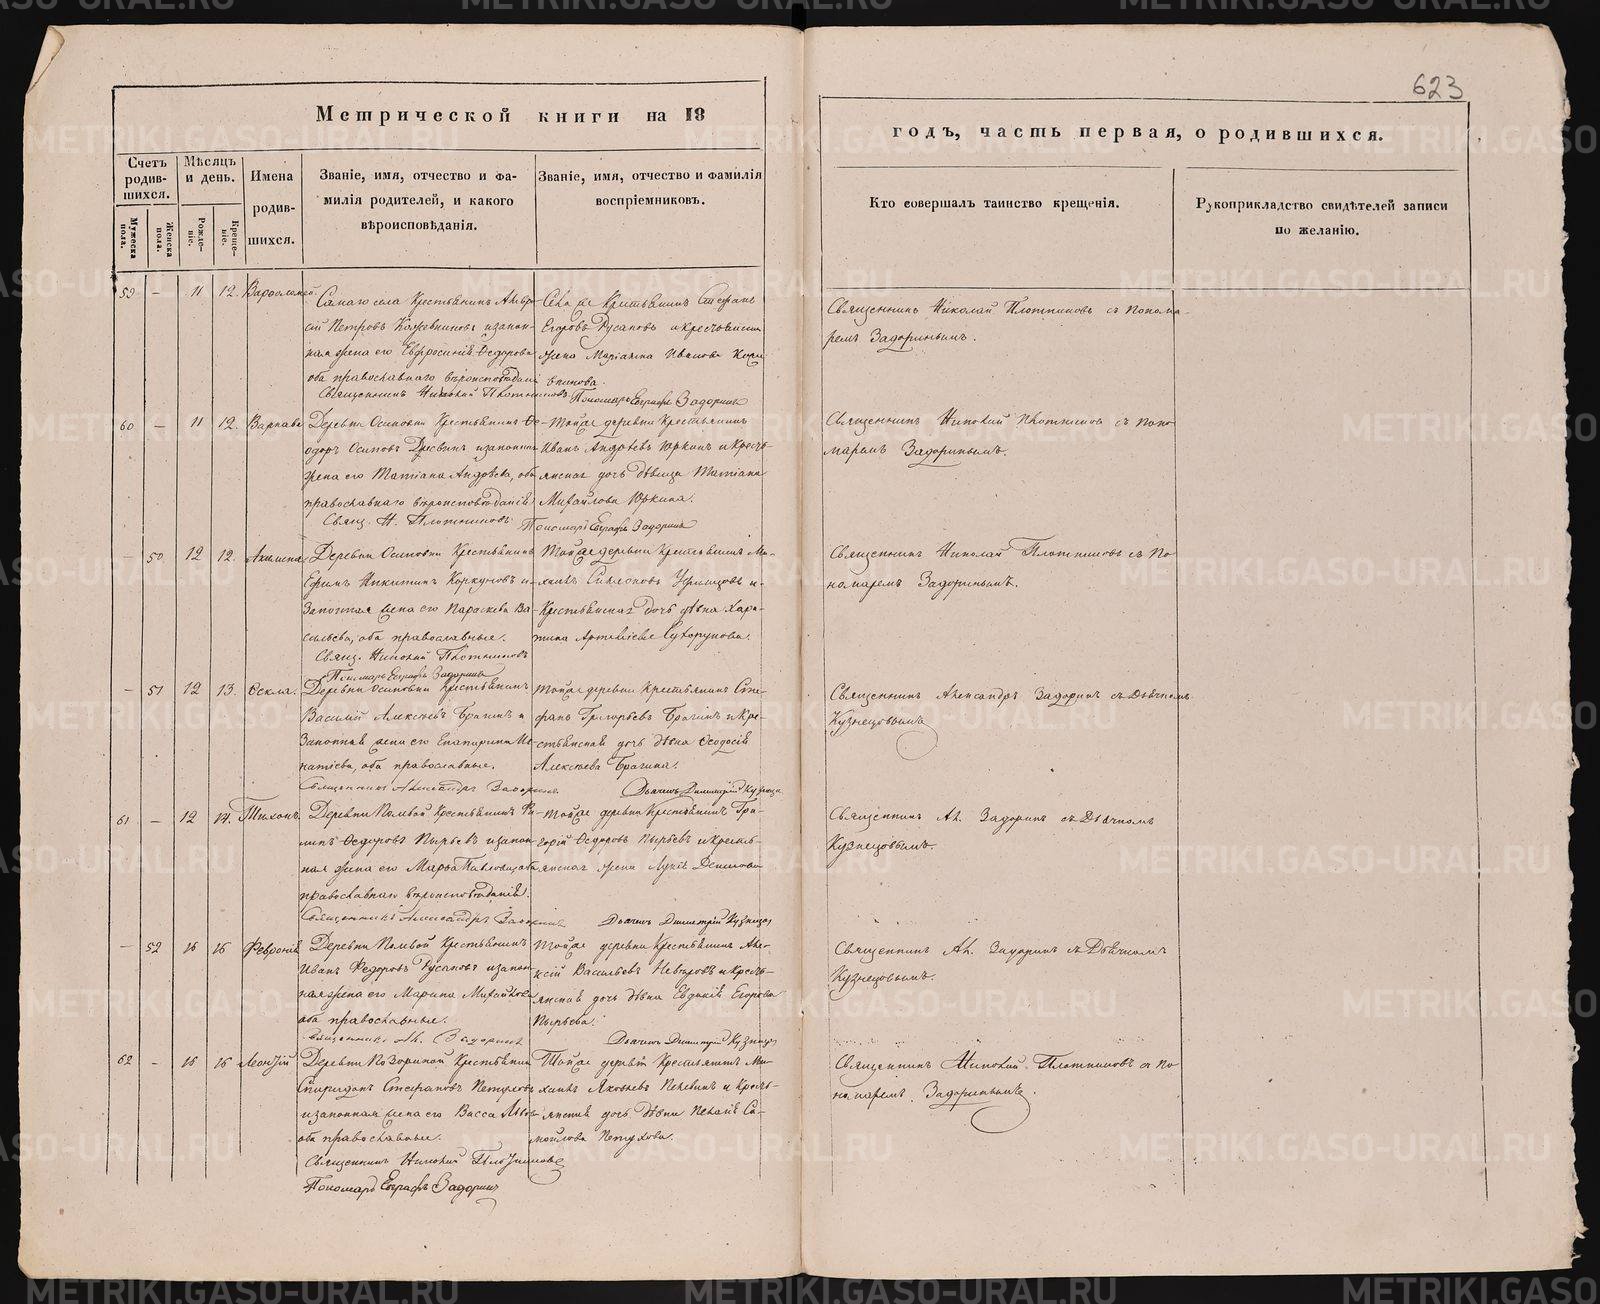 623
Метрической книги на 18
годъ, часть первая, о родившихся.
Счетъ родив-шихся.
Мѣсяцъ и день.
Имена родив-шихся.
Званіе, имя, отчество и фа-
милія родителей, и какого
вѣроисповѣданія.
Званіе, имя, отчество и фамилія
воспріемниковъ.
Кто совершалъ таинство крещенія.
Рукоприкладство свидѣтелей записи
по желанію.
Мужеска пола.
Женска пола.
Рожде-ніе.
Креще-ніе.
59 — 11 12. Варѳоломей.
Самаго села Крестьянинъ
сій Петровъ Кожевниковъ и закон-
ная жена его Евфросинія Ѳедорова
оба православнаго вѣроисповѣданія
Священникъ Николай Плотниковъ. Пономарь Евграфъ Задоринъ
Села же Крестьянинъ Стефанъ
Егоровъ Русаковъ и крестьянская
жена Маріанна Иванова
Священникъ Николай Плотниковъ съ Понома-
ремъ Задоринымъ.
60 — 11 12. Варнава
Деревни Осиновки Крестьянинъ Ѳе-
одоръ Осиповъ и законная
жена его Татіана Андреева, оба
православнаго вѣроисповѣданія
Свящ. Н. Плотниковъ. Пономарь Евграфъ Задоринъ
Той же деревни Крестьянинъ
Иванъ Андреевъ Юркинъ и Кресть-
янская дочь дѣвица Татіана
Михайлова Юркина.
Священникъ Николай Плотниковъ съ Поно-
маремъ Задоринымъ.
— 50 12 12. Акилина
Деревни Осиновки Крестьянинъ
Ефимъ Никитинъ Коркуновъ и
Законная жена его Параскева Ва-
сильева, оба православные.
Свящ. Николай Плотниковъ
Пономарь Евграфъ Задоринъ
Той же деревни Крестьянинъ Ми-
хаилъ Симоновъ и
Крестьянская дочь дѣвка Хари-
тина Артемьева Сухорукова.
Священникъ Николай Плотниковъ съ По-
номаремъ Задоринымъ.
— 51 12 13. Ѳекла.
Деревни Осиновки Крестьянинъ
Василій Алексѣевъ Брагинъ и
Законная жена его Екатерина Иг-
натіева, оба православные.
Священникъ Александръ Задоринъ. Дьячекъ Димитрій Кузнецов
Той же деревни Крестьянинъ Сте-
фанъ Григорьевъ Брагинъ и Кре-
стьянская дочь дѣвка Ѳеодосія
Алексѣева Брагина.
Священникъ Александръ Задоринъ съ Дьячкомъ
Кузнецовымъ
61 — 12 14. Тихонъ.
Деревни Полевой Крестьянинъ Фи-
липъ Ѳедоровъ Пырьевъ и закон-
ная жена его Марѳа Павлова, оба
православнаго вѣроисповѣданія.
Священникъ Александръ Задоринъ Дьячекъ Димитрій Кузнецов
Той же деревни Крестьянинъ Гри-
горій Ѳедоровъ Пырьевъ и Кресть-
янская жена Лукія Денисова
Священникъ Ал. Задоринъ съ Дьячкомъ
Кузнецовымъ.
— 52 15 16 Февронія
Деревни Полевой Крестьянинъ
Иванъ Федоровъ Русаковъ и закон-
ная жена его Марина Михайлова
оба православные.
Священникъ Ал. Задоринъ Дьячекъ Димитрій Кузнецов
Той же деревни Крестьянинъ Але-
ксій Васильевъ Невѣровъ и Кресть-
янская дочь дѣвка Евдокія Егорова
Пырьева.
Священникъ Ал. Задоринъ съ Дьячкомъ
Кузнецовымъ.
62 — 15 16 Леонтій
Деревни Крестьянинъ
Спиридонъ Стефановъ Петуховъ
и законная жена его Васса
оба православные.
Священникъ Николай Плотниковъ
Пономарь Евграфъ Задоринъ
Той же деревни Крестьянинъ Ми-
хаилъ Яковлевъ и Кресть-
янская дочь дѣвка Пелагія Са-
мойлова Петухова.
Священникъ Николай Плотниковъ съ По-
номаремъ Задоринымъ.
METRIKI.GASO-URAL.RU